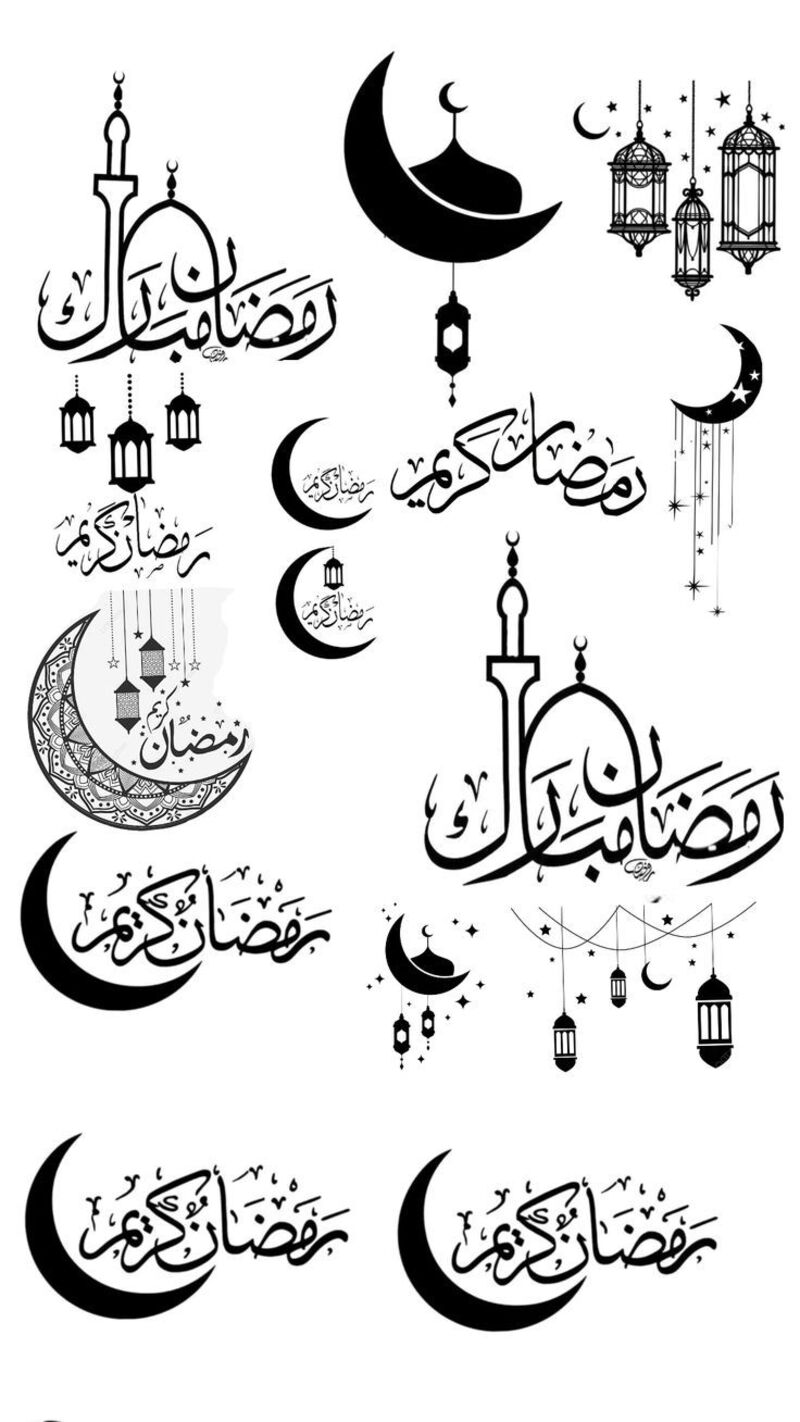 رمضان مبارك
رمضان كريم
رمضان كريم
رمضان كريم
رمضان كريم
كريم
رمضان
رمضان مبارك
رمضان كريم
رمضان كريم
رمضان كريم